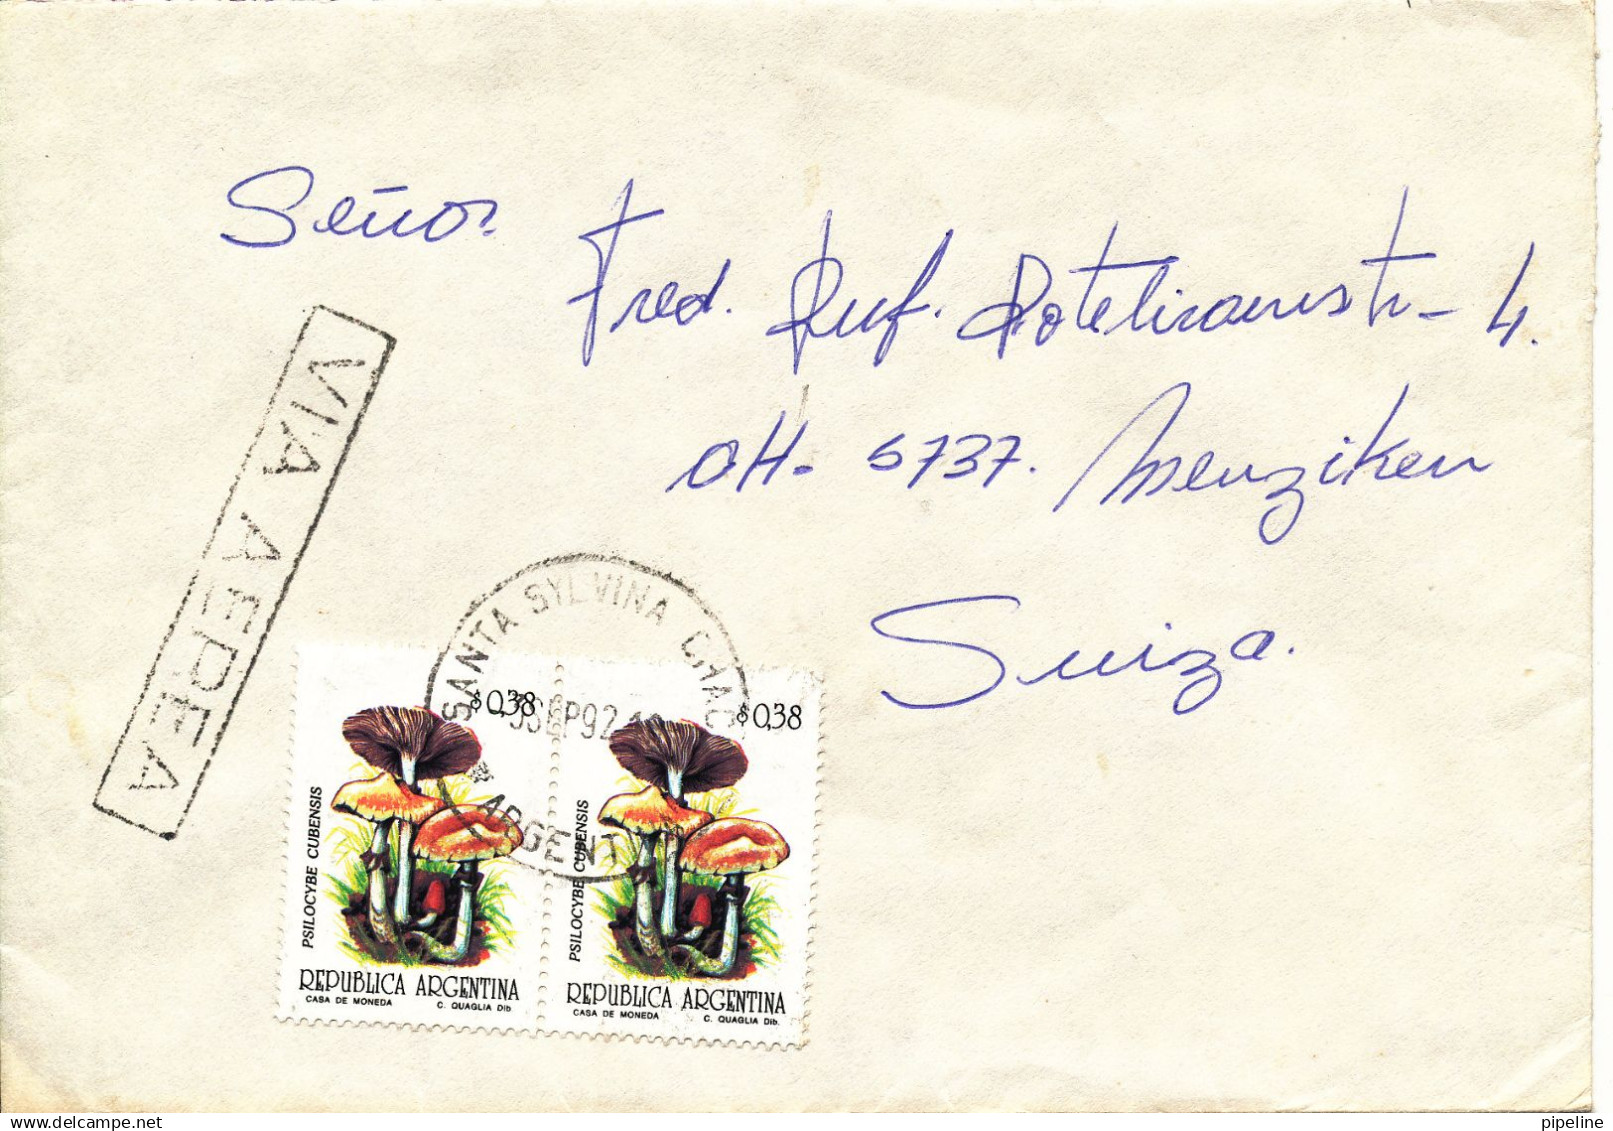 Señor
Fred. Ruf.
4.
CH- 5737. Menziken
Suiza.
VIA AEREA
SANTA SYLVINA CHACO
SEP92
ARGENT
$0,38
PSILOCYBE CUBENSIS
REPUBLICA ARGENTINA
CASA DE MONEDA C. QUAGLIA Dib
$0,38
PSILOCYBE CUBENSIS
REPUBLICA ARGENTINA
CASA DE MONEDA C. QUAGLIA Dib.
www.delcampe.net
pipeline